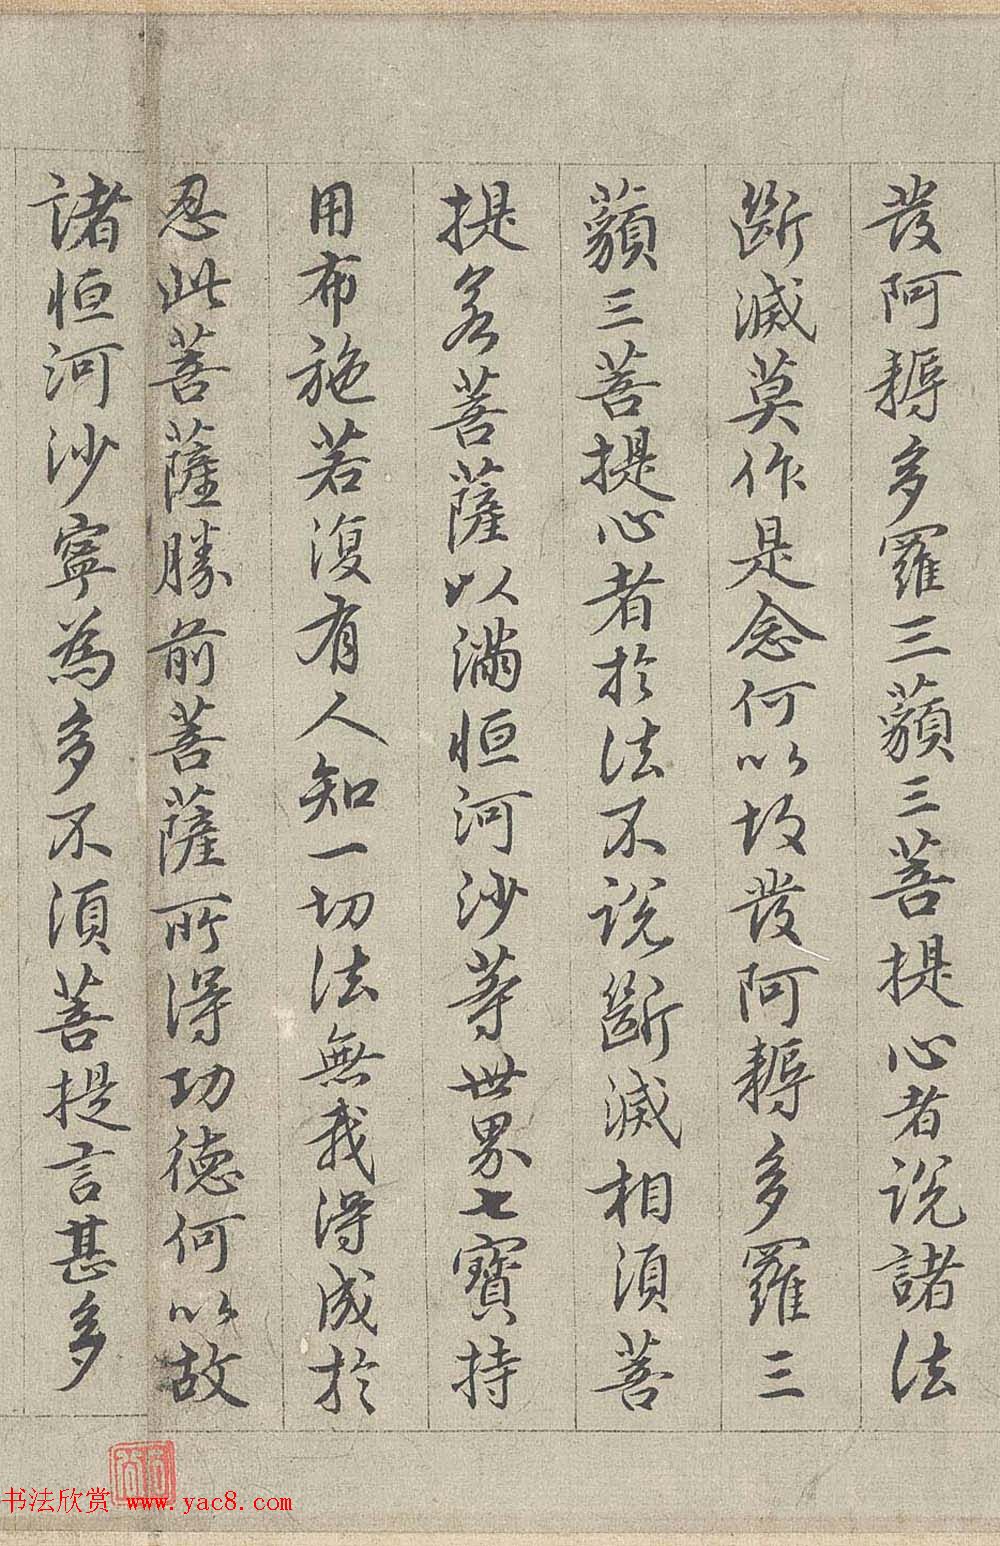 發阿耨多羅三藐三菩提心者說諸法
斷滅莫作是念何以故發阿耨多羅三
藐三菩提心者於法不說斷滅相須菩
提若菩薩以滿恒河沙等世界七寶持
用布施若復有人知一切法無我得成於
忍此菩薩勝前菩薩所得功德何以故
諸恒河沙寧為多不須菩提言甚多
书法欣赏 www.yac8.com